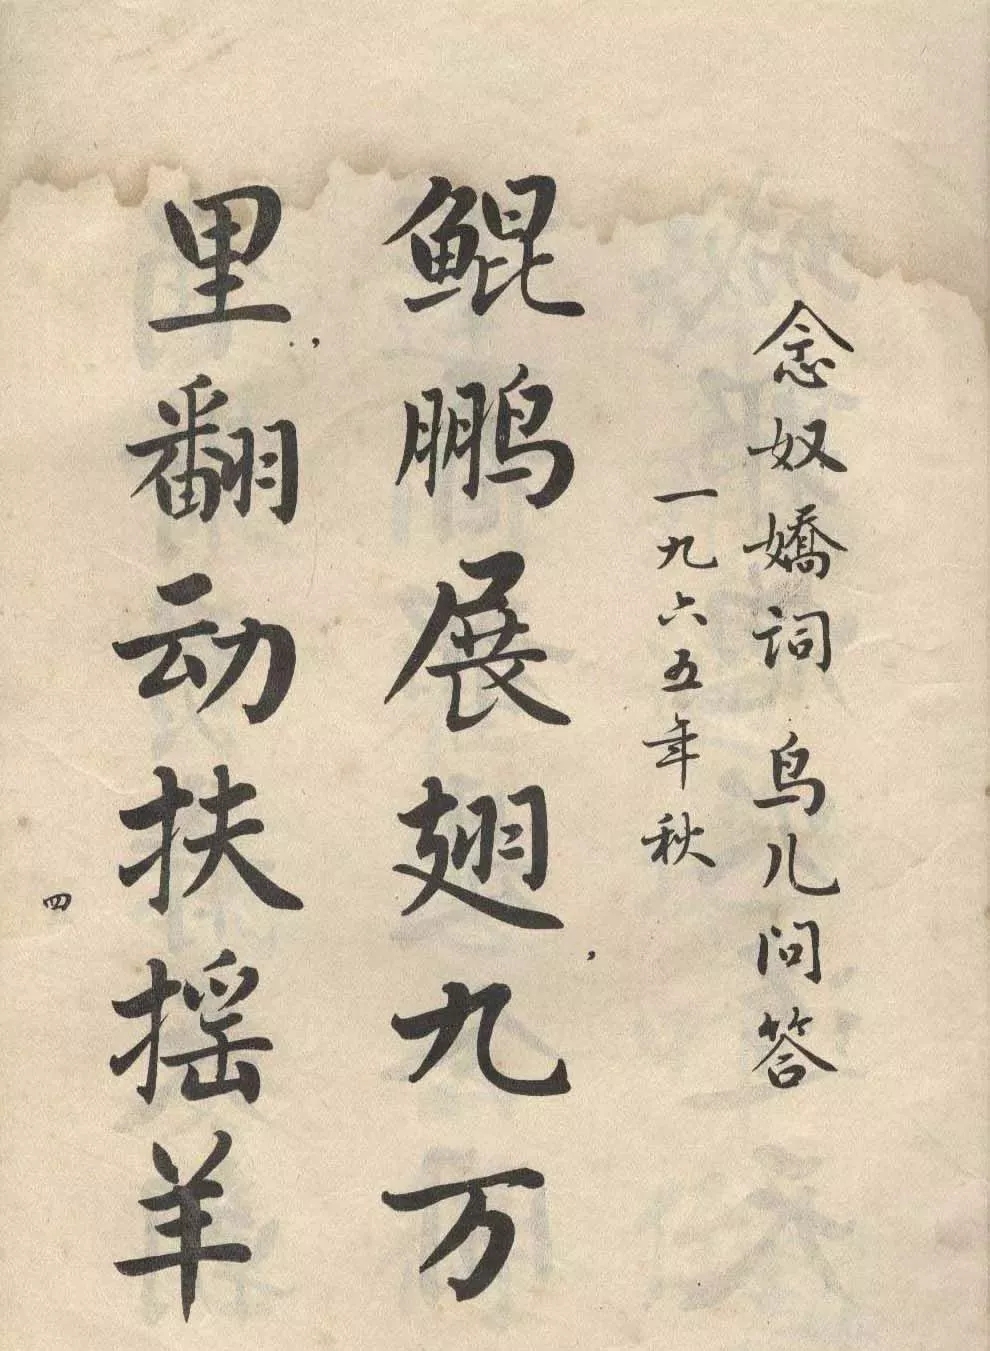 念奴嬌词 鸟儿问答
一九六五年秋
鲲鹏展翅,九万
里,翻动扶摇羊
四